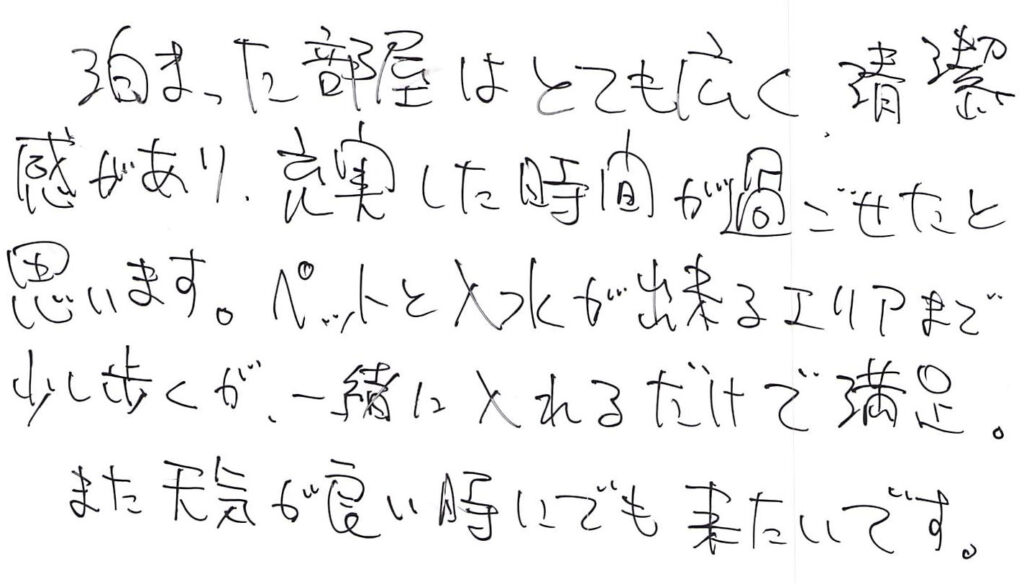 泊まった部屋はとても広く、清潔
感があり、充実した時間が過ごせたと
思います。ペットと入水が出来るエリアまで
少し歩くが、一緒に入れるだけで満足。
また天気が良い時にでも来たいです。